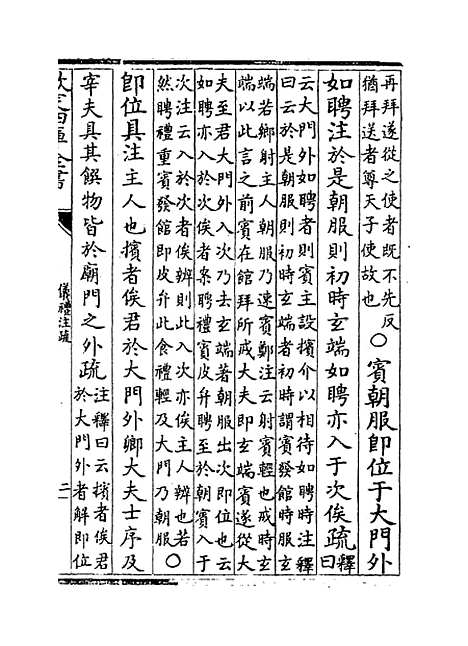 再拜遂從之使者既不先反
猶拜送者尊天子使故也〇賓朝服即位于大門外
如聘注於是朝服則初時玄端如聘亦入于次俟疏釋
曰
云大門外如聘者則賓主設擯介以相待如聘時注釋
曰云於是朝服則初時玄端者初時謂賓發館時服玄
端若鄉射主人朝服乃速賓鄭注云射賓輕也戒時玄
端以此言之前賓在館拜所戒大夫即玄端賓遂從大
夫至君大門外入次乃去玄端著朝服出次即位也云
如聘亦入於次俟者案聘禮賓皮弁聘至於朝賓入于
次注云入於次者俟辦則此入次亦俟主人辨也若
然聘禮重賓發館即皮弁此食禮輕及大門乃朝服〇
即位具注主人也擯者俟君於大門外卿大夫士序及
宰夫具其饌物皆於廟門之外疏注釋曰云擯者俟君
於大門外者解即位
欽定四庫全書
儀禮注疏
二